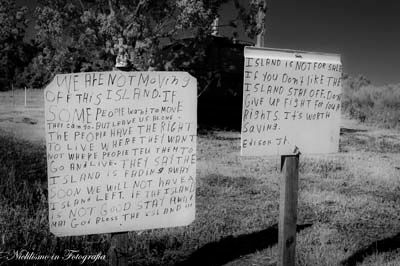 WE ARE NOT MOVING
OFF THIS ISLAND. IF
SOME PEOPLE WANT TO MOVE
THEY CAN GO. BUT LEAVE US ALONE.
THE PEOPLE HAVE THE RIGHT
TO LIVE WHERE THEY WANT
NOT WHERE PEOPLE TELL THEM TO
GO AND LIVE. THEY SAY THE
ISLAND IS FADING AWAY
SOON WE WILL NOT HAVE A
ISLAND LEFT. IF THE ISLAND
IS NOT GOOD STAY AWAY
MAY GOD BLESS THE ISLAND
ISLAND IS NOT FOR SALE
IF YOU DON'T LIKE THE
ISLAND STAY OFF. DON'T
GIVE UP FIGHT FOR YOUR
RIGHTS. IT'S WORTH
SAVING.
EDISON JR.
Nichilismo in Fotografia